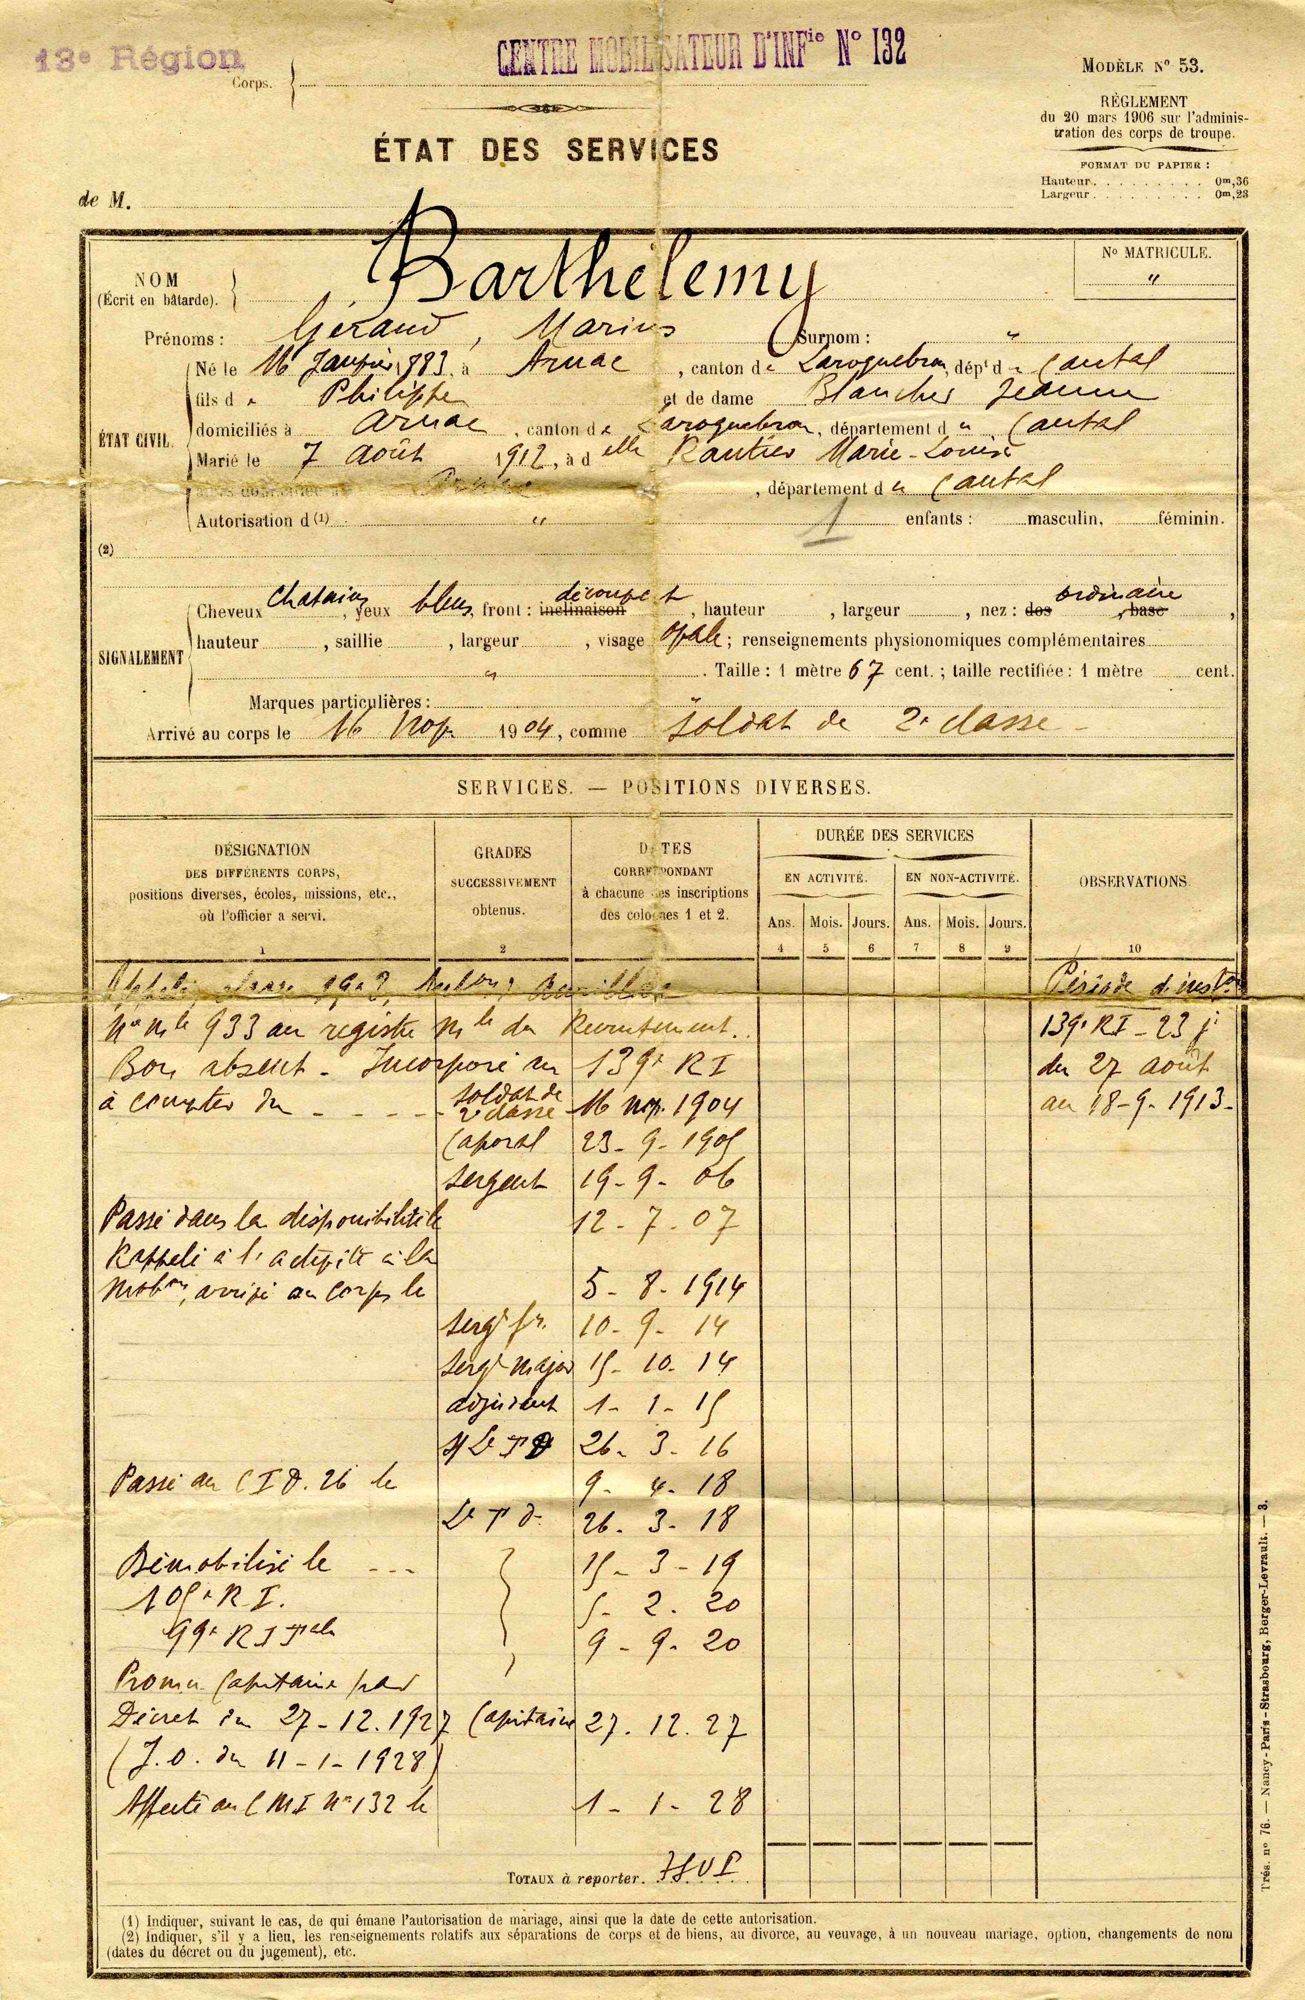 13e Région
CENTRE MOBILISATEUR D'INFie No 132
Corps.
MODÈLE No 53.
RÈGLEMENT
du 20 mars 1906 sur l'adminis-
tration des corps de troupe.
FORMAT DU PAPIER :
Hauteur. . . . . . . . . 0m,36
Largeur. . . . . . . . . 0m,23
ÉTAT DES SERVICES
de M.
No MATRICULE.
"
NOM
(Écrit en bâtarde).
Barthélemy
Prénoms : Géraud, Marius Surnom : "
ÉTAT CIVIL.
Né le 16 Janvier 1883, à Arnac, canton de Laroquebrou, dépt du Cantal
fils de Philippe et de dame Blanches Jeanne
domiciliés à Arnac, canton de Laroquebrou, département du Cantal
Marié le 7 Août 1912, à delle Rantier Marie-Louise
Arnac, département du Cantal
Autorisation d(1) " 1 enfants : masculin, féminin.
(2)
SIGNALEMENT
Cheveux chatains, yeux bleus, front : inclinaison découvert, hauteur , largeur , nez : dos ordinaire, base ,
hauteur , saillie , largeur , visage ovale ; renseignements physionomiques complémentaires
" . Taille : 1 mètre 67 cent. ; taille rectifiée : 1 mètre cent.
Marques particulières : "
Arrivé au corps le 16 Nov. 1904, comme soldat de 2e classe -
SERVICES. — POSITIONS DIVERSES.
DÉSIGNATION
DES DIFFÉRENTS CORPS,
positions diverses, écoles, missions, etc.,
où l'officier a servi.
1
GRADES
SUCCESSIVEMENT
obtenus.
2
DATES
CORRESPONDANT
à chacune des inscriptions
des colonnes 1 et 2.
DURÉE DES SERVICES
EN ACTIVITÉ. EN NON-ACTIVITÉ.
Ans. Mois. Jours. Ans. Mois. Jours.
4 5 6 7 8 9
OBSERVATIONS
10
Appelé, classe 1903, Aurillac
No mle 933 au registre mle du Recrutement.
Bon absent - Incorporé au 139e RI
à compter du - - - - soldat de 2e classe 16 nov. 1904
Caporal 23-9-1905
Sergent 19-9-06
Passé dans la disponibilité le 12-7-07
Rappelé à l'activité à la
mobon, arrivé au corps le 5-8-1914
sergt fr. 10-9-14
Sergt major 15-10-14
adjudant 1-1-15
S/Lt TD 26-3-16
Passé au CID. 26 le 9-4-18
Lt TD 26-3-18
Démobilisé le --- 15-3-19
105e R.I. 5-2.20
99e RI Tale 9-9-20
Promu Capitaine par
Décret du 27-12.1927 Capitaine 27.12.27
(J.O. du 11-1-1928)
Affecté au CMI No 132 le 1-1-28
Période d'inston
139e RI - 23 j
du 27 août
au 18-9-1913-
TOTAUX à reporter. TSVP
(1) Indiquer, suivant le cas, de qui émane l'autorisation de mariage, ainsi que la date de cette autorisation.
(2) Indiquer, s'il y a lieu, les renseignements relatifs aux séparations de corps et de biens, au divorce, au veuvage, à un nouveau mariage, option, changements de nom
(dates du décret ou du jugement), etc.
Trés. no 76. — Nancy-Paris-Strasbourg, Berger-Levrault. — 3.